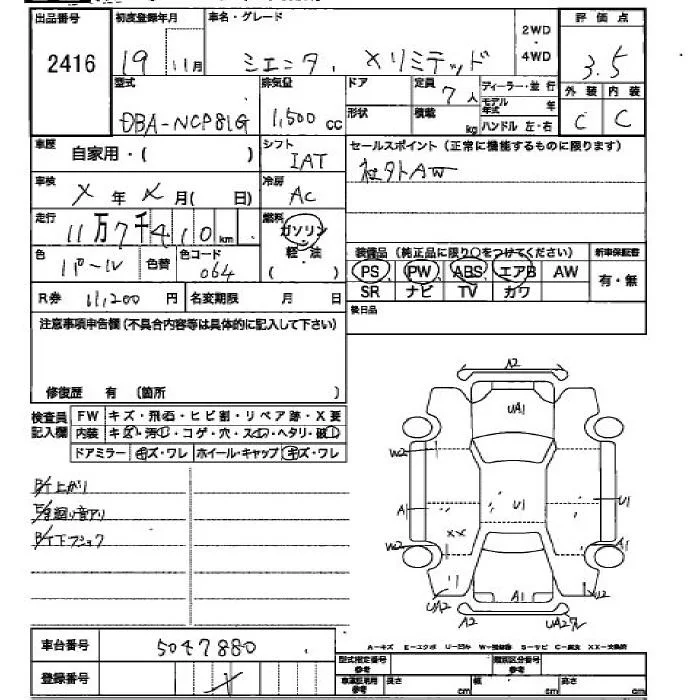 出品番号 初度登録年月 車名・グレード 2WD・4WD 評価点
2416 19 11月 シエンタ. Xリミテッド 3.5
型式 排気量 ドア 定員 7人 ディーラー・並行 外装 内装
DBA-NCP81G 1,500 cc 形状 積載 kg モデル年式 年 C C
ハンドル 左・右
車歴 自家用・( ) シフト IAT セールスポイント(正常に機能するものに限ります)
車検 X年X月( 日) 冷房 AC 社外AW
走行 11万7千410km 燃料 ガソリン・軽・法( )
色 パール 色替 色コード 064
装備品(純正品に限り○をつけてください) 新車保証書
PS PW ABS エアB AW 有・無
SR ナビ TV カワ
R券 11,200円 名変期限 月 日 後日品
注意事項申告欄(不具合内容等は具体的に記入して下さい)
修復歴 有 (箇所 )
検査員記入欄 FW キズ・飛石・ヒビ割・リペア跡・X要
内装 キズ・汚・コゲ・穴・スレ・ヘタリ・破
ドアミラー キズ・ワレ ホイール・キャップ キズ・ワレ
A2
UA1
W2
A1 U1 U1
XX
W2 A1
UA2 A1 U2
A2 UA2
車台番号 5047880
登録番号
A-キズ E-エクボ
型式指定番号 参考 類別区分番号 参考
長さ cm 幅 cm 高さ cm